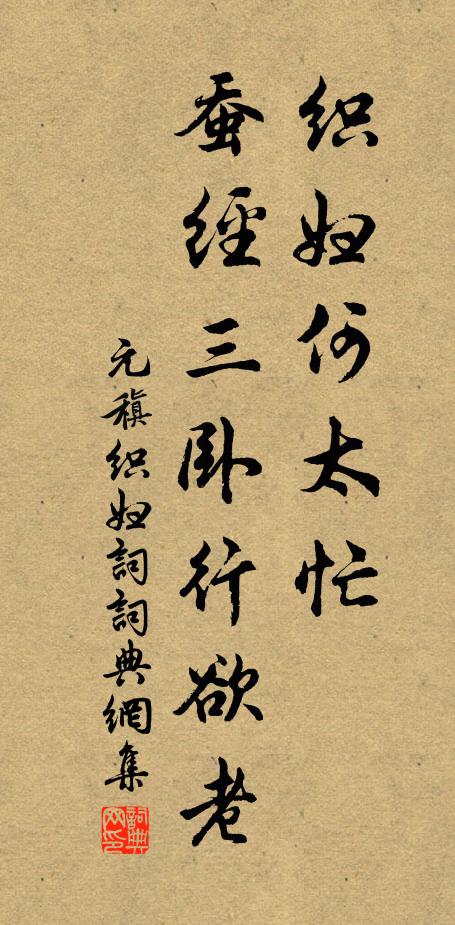 织妇何太忙
蚕经三卧行欲老
元稹织妇詞詞典網集
詞典网印